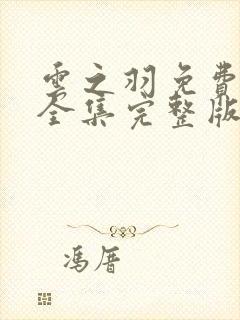 雲之羽免費
全集完整版
馮厝